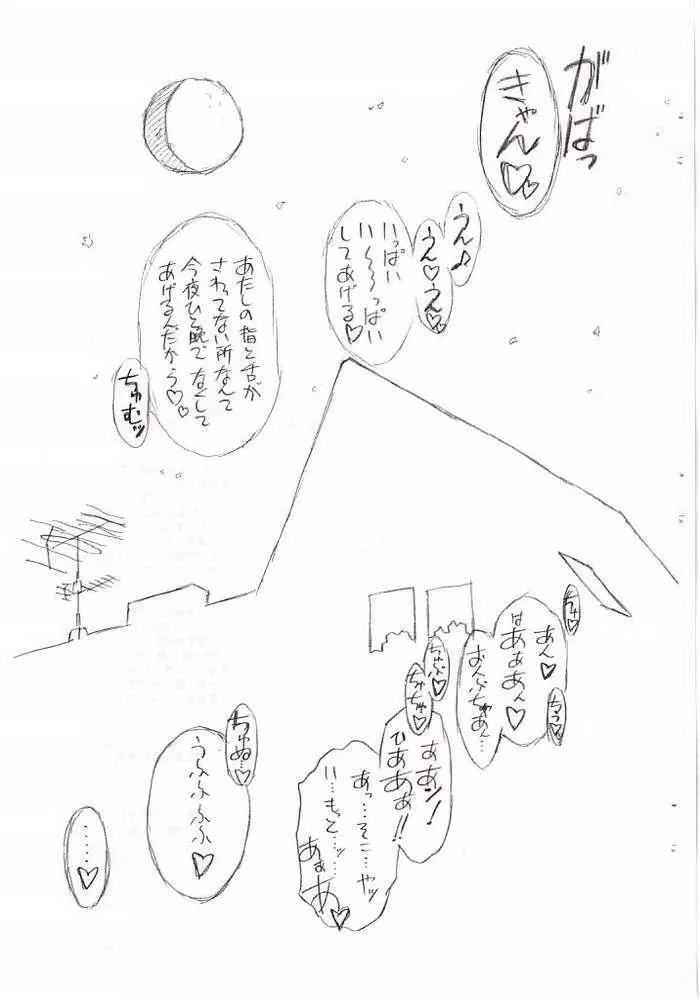 がばっ
きゃん♡♡
うん♪
うん♡うん♡
いっぱい
い〜〜〜っぱい
してあげる♡
あたしの指と舌が
さわってない所なんて
今夜ひと晩で なくして
あげるんだから♡♡
ちゅむッ
ちゅ♡
あん♡
はあぁあん♡
おんぷちゃあん…
ちう♡
ちゅぷ♡
ちゅちゅ♡
ああン!
ひああぁ!!
あっ…そこ…やッ
い…もっと…ッ…
あぁあ♡
ちゅぬ…♡
うふふふふ♡
……♡